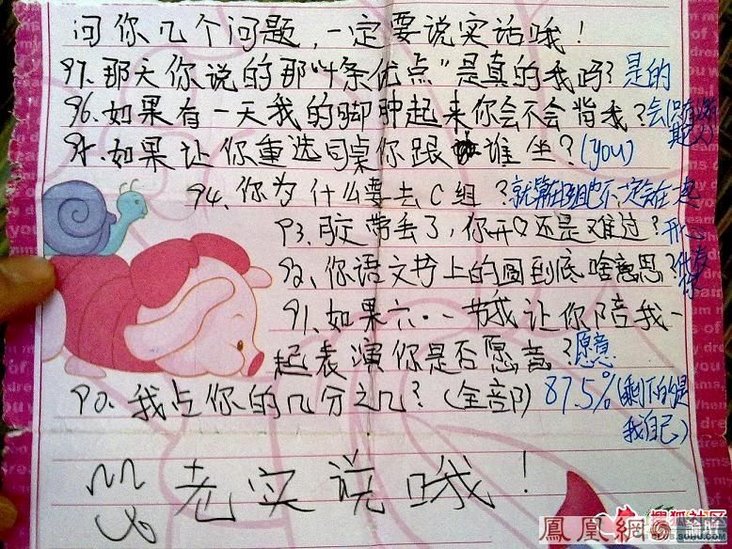 问你几个问题，一定要说实话哦！
97.那天你说的那"十条优点"是真的我吗？是的
96.如果有一天我的脚肿起来你会不会背我？会(只有
95.如果让你重选同桌你跟谁坐？(you)
94.你为什么要去C组？就算在B组也不一定会在一起
93.胶带丢了，你开心还是难过？开心
92.你语文书上的圆到底啥意思？代表你
91.如果六·一节我让你陪我一
起表演你是否愿意？愿意
90.我占你的几分之几？(全部) 87.5%(剩下的是
我自己)
老实说哦！
凤凰網
搜狐社区
SOHU.COM